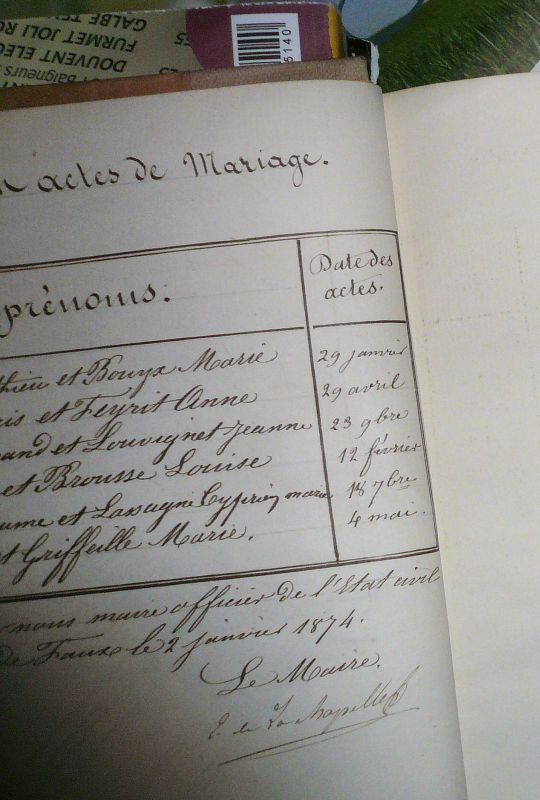 GALBE TE
FURMET JOLI RO
DOUVENT ELEC
Baigneurs
25
5140
actes de Mariage.
prénoms.
Date des
actes.
thieu et Bouyx Marie 29 janvier
is et Feyrit Anne 29 avril
and et Louvignet Jeanne 23 9bre
et Brousse Louise 12 février
aume et Lassagne Cyprien marie 18 7bre
et Griffeille Marie. 4 mai.
nous maire officier de l'Etat civil
de Faux le 2 janvier 1874.
Le Maire.